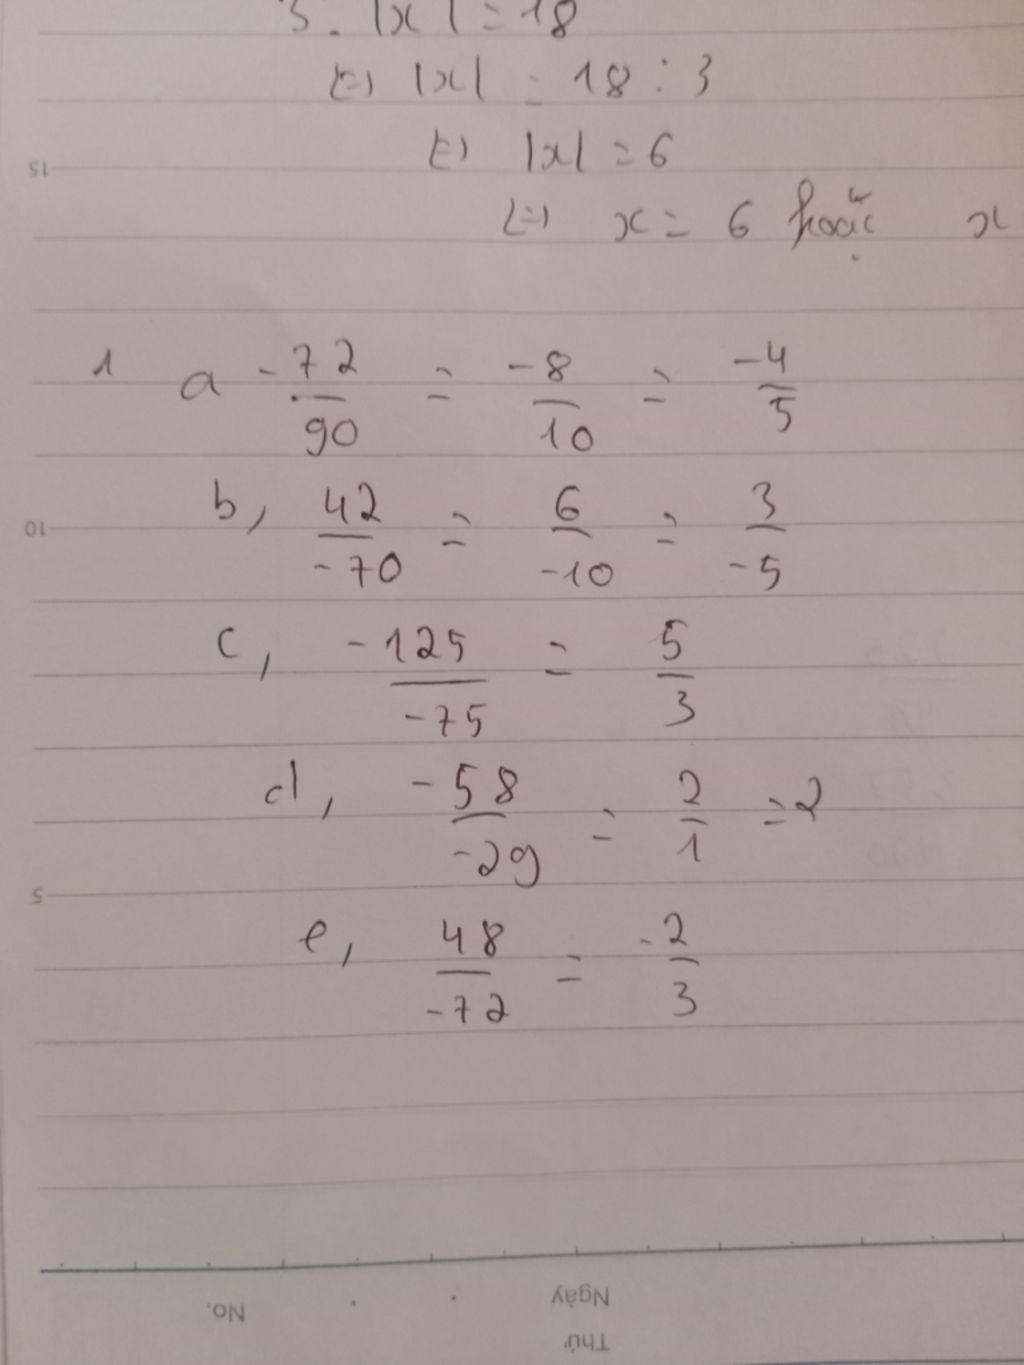 3. |x| = 18
⇔ |x| = 18 : 3
⇔ |x| = 6
⇔ x = 6 hoặc x
1 a -72/90 = -8/10 = -4/5
b, 42/-70 = 6/-10 = 3/-5
c, -125/-75 = 5/3
d, -58/-29 = 2/1 = 2
e, 48/-72 = -2/3
15
10
5
No.
Ngày
Thứ